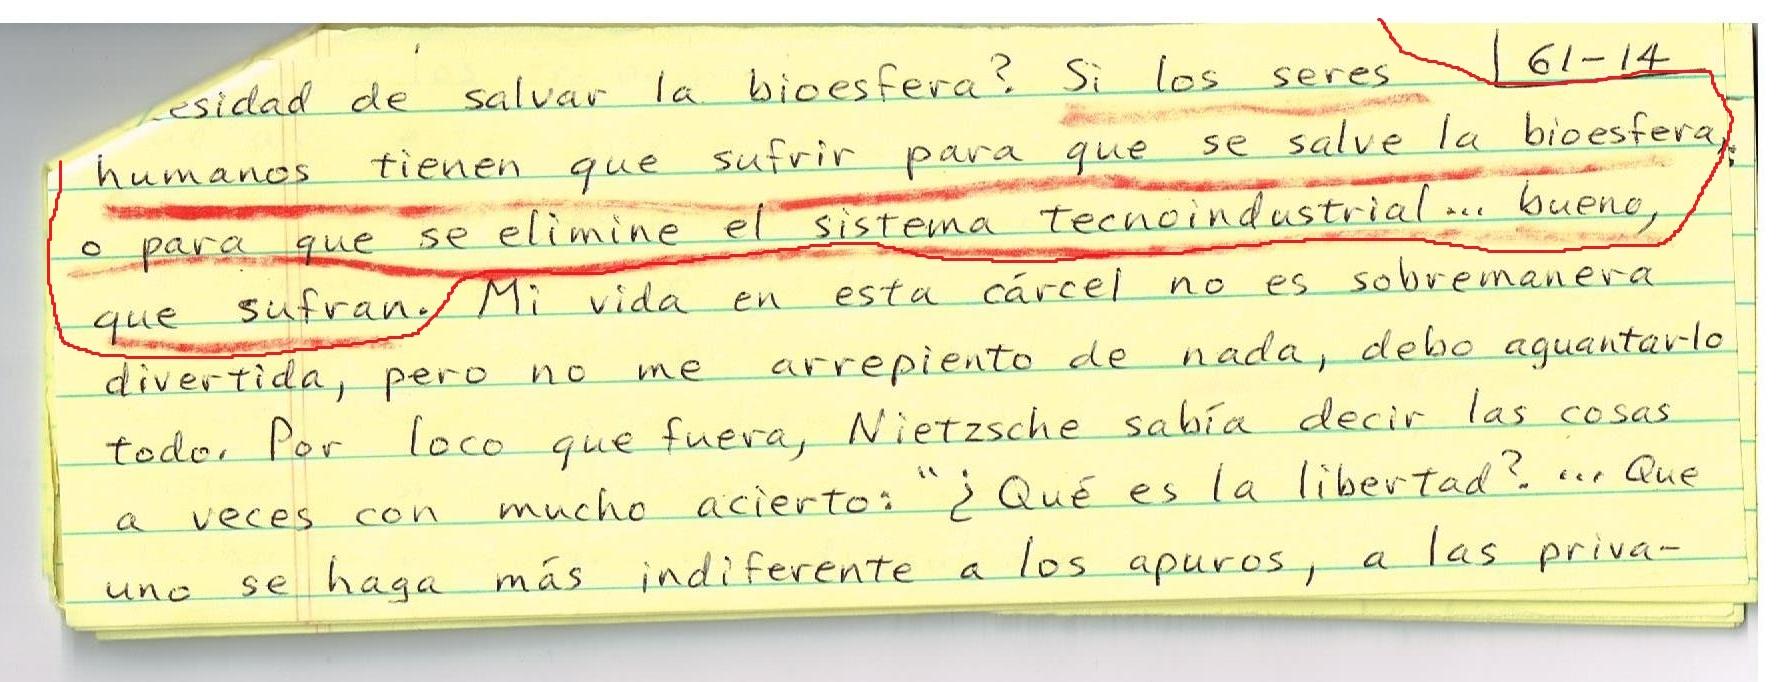 61-14
esidad de salvar la bioesfera? Si los seres
humanos tienen que sufrir para que se salve la bioesfera,
o para que se elimine el sistema tecnoindustrial... bueno,
que sufran. Mi vida en esta cárcel no es sobremanera
divertida, pero no me arrepiento de nada, debo aguantarlo
todo. Por loco que fuera, Nietzsche sabía decir las cosas
a veces con mucho acierto: "¿Qué es la libertad? ... Que
uno se haga más indiferente a los apuros, a las priva-